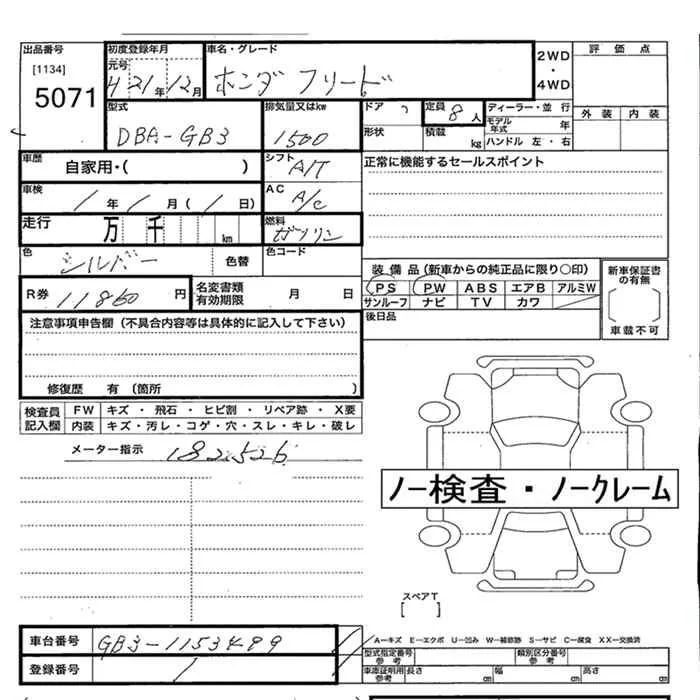 出品番号 初度登録年月 車名・グレード 2WD・4WD 評価点
[1134] 元号 H 21年 12月 ホンダ フリード
5071 型式 排気量又はkw ドア 定員 8人 ディーラー・並行 外装 内装
DBA-GB3 1500 形状 積載 kg モデル年式 年
ハンドル 左・右
車歴 自家用・( ) シフト A/T 正常に機能するセールスポイント
車検 年 月 ( 日) AC A/C
走行 万 千 km 燃料 ガソリン
色 シルバー 色替 色コード
装備品(新車からの純正品に限り○印) 新車保証書の有無
R券 11860円 名変書類有効期限 月 日 PS PW ABS エアB アルミW
サンルーフ ナビ TV カワ
後日品 車載不可
注意事項申告欄(不具合内容等は具体的に記入して下さい)
修復歴 有(箇所 )
検査員記入欄 FW キズ・飛石・ヒビ割・リペア跡・X要
内装 キズ・汚レ・コゲ・穴・スレ・キレ・破レ
メーター指示 182526
ノー検査・ノークレーム
スペアT
[ ]
車台番号 GB3-1153499 A…キズ E…エクボ U…凹み W…補修跡 S…サビ C…腐食 XX…交換済
登録番号 型式指定番号 参考 類別区分番号 参考
車庫証明用参考 長さ cm 幅 cm 高さ cm